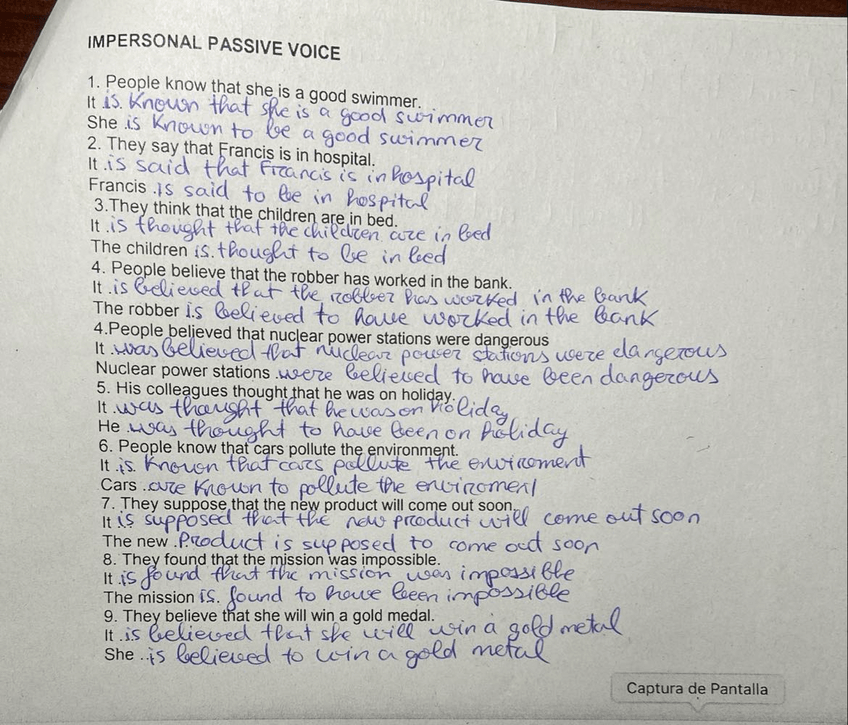 IMPERSONAL PASSIVE VOICE
1. People know that she is a good swimmer.
It is known that she is a good swimmer
She is known to be a good swimmer
2. They say that Francis is in hospital.
It is said that Francis is in hospital
Francis is said to be in hospital
3.They think that the children are in bed.
It is thought that the children are in bed
The children is thought to be in bed
4. People believe that the robber has worked in the bank.
It is believed that the robber has worked in the bank
The robber is believed to have worked in the bank
4.People believed that nuclear power stations were dangerous
It was believed that nuclear power stations were dangerous
Nuclear power stations were believed to have been dangerous
5. His colleagues thought that he was on holiday.
It was thought that he was on holiday
He was thought to have been on holiday
6. People know that cars pollute the environment.
It is known that cars pollute the enviroment
Cars are known to pollute the enviroment
7. They suppose that the new product will come out soon.
It is supposed that the new product will come out soon
The new product is supposed to come out soon
8. They found that the mission was impossible.
It is found that the mission was impossible
The mission is found to have been impossible
9. They believe that she will win a gold medal.
It is believed that she will win a gold metal
She is believed to win a gold metal
Captura de Pantalla